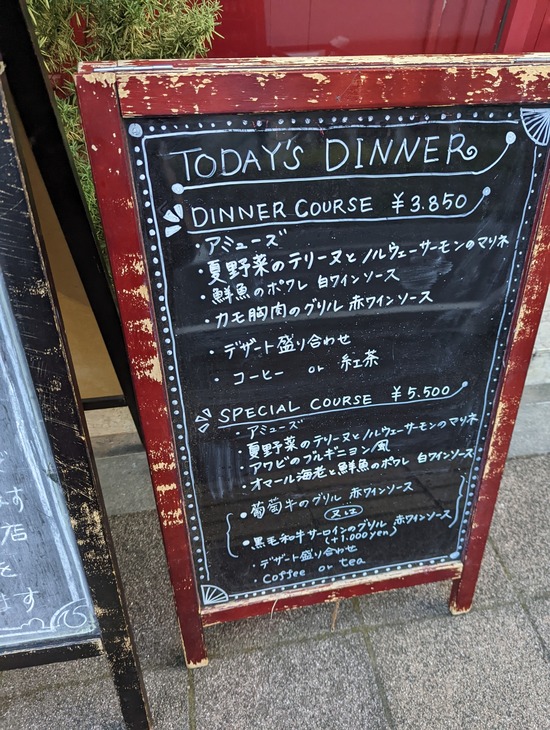 TODAY'S DINNER
DINNER COURSE ¥3.850
・アミューズ
・夏野菜のテリーヌとノルウェーサーモンのマリネ
・鮮魚のポワレ 白ワインソース
・カモ胸肉のグリル 赤ワインソース
・デザート盛り合わせ
・コーヒー or 紅茶
SPECIAL COURSE ¥5.500
・アミューズ
・夏野菜のテリーヌとノルウェーサーモンのマリネ
・アワビのブルギニヨン風
・オマール海老と鮮魚のポワレ 白ワインソース
●葡萄牛のグリル 赤ワインソース
又は
●黒毛和牛サーロインのグリル 赤ワインソース
(+1.000yen)
・デザート盛り合わせ
・Coffee or tea
す
店
を
ます